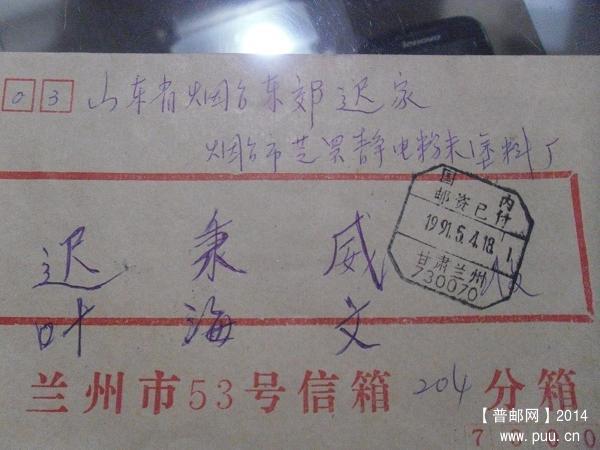 03 山东省烟台东郊迟家
烟台市芝罘静电粉末塗料厂
国内
邮资已付
1991.5.4.18.
甘肃兰州
730070
迟秉威
叶海文
收
兰州市53号信箱204分箱
【普邮网】2014
www.puu.cn
lenovo